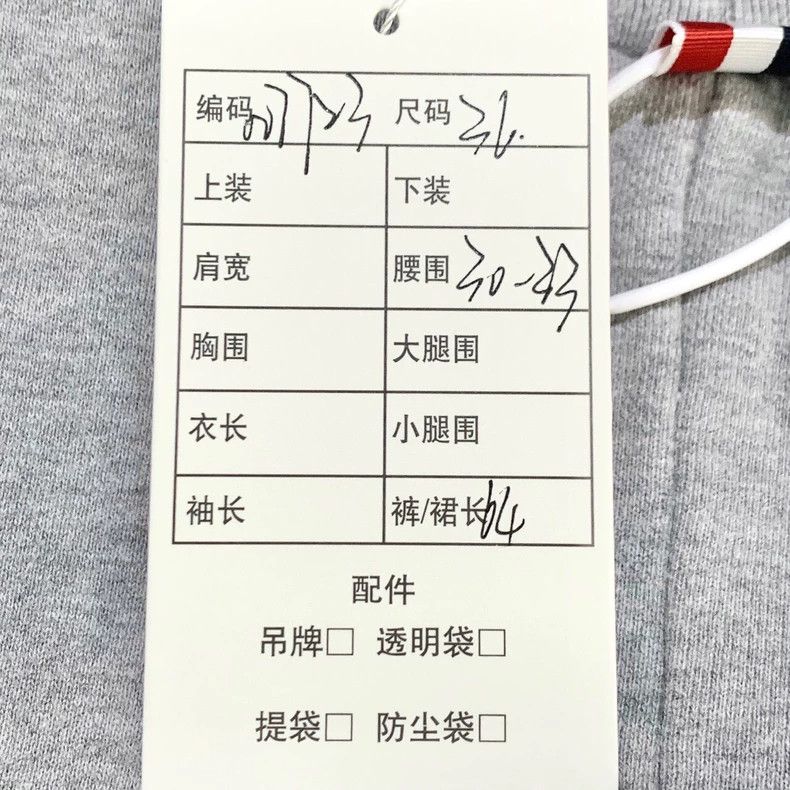 编码 尺码 36.
上装 下装
肩宽 腰围 30-43
胸围 大腿围
衣长 小腿围
袖长 裤/裙长 64
配件
吊牌□ 透明袋□
提袋□ 防尘袋□